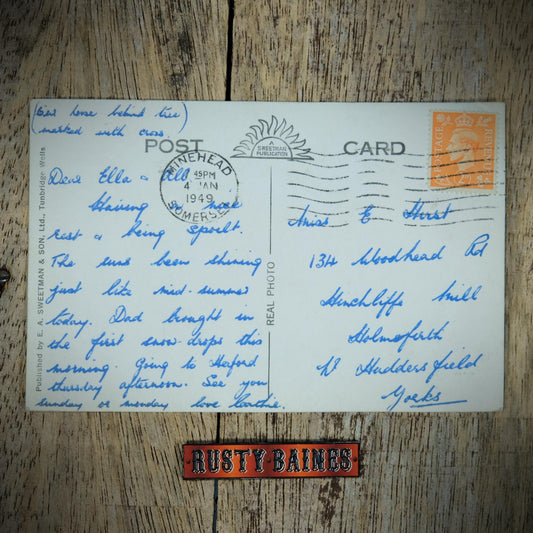 (Our house behind tree)
(marked with cross
POST CARD
A SWEETMAN PUBLICATION
MINEHEAD
45PM
4 JAN
1949
SOMERSET
POSTAGE REVENUE
Dear Ella & All
Having a nice
rest & being spoilt.
The suns been shining
just like mid-summer
today. Dad brought in
the first snow-drops this
morning. Going to
thursday afternoon. See you
sunday or monday love
Miss E Hirst
134 Woodhead Rd
Hinchliffe Mill
Holmfirth
Nr Huddersfield
Yorks
REAL PHOTO
Published by E. A. SWEETMAN & SON, Ltd., Tunbridge Wells
RUSTY BAINES